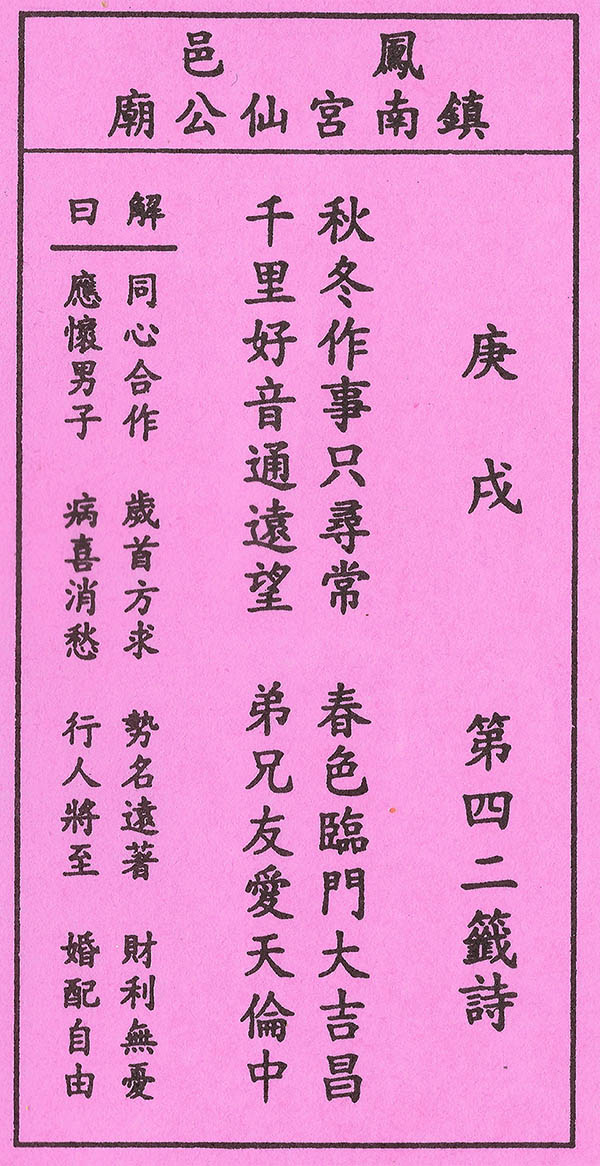 鳳邑
鎮南宮仙公廟
庚戌 第四二籤詩
秋冬作事只尋常 春色臨門大吉昌
千里好音通遠望 弟兄友愛天倫中
解曰
同心合作 歲首方求 勢名遠著 財利無憂
應懷男子 病喜消愁 行人將至 婚配自由